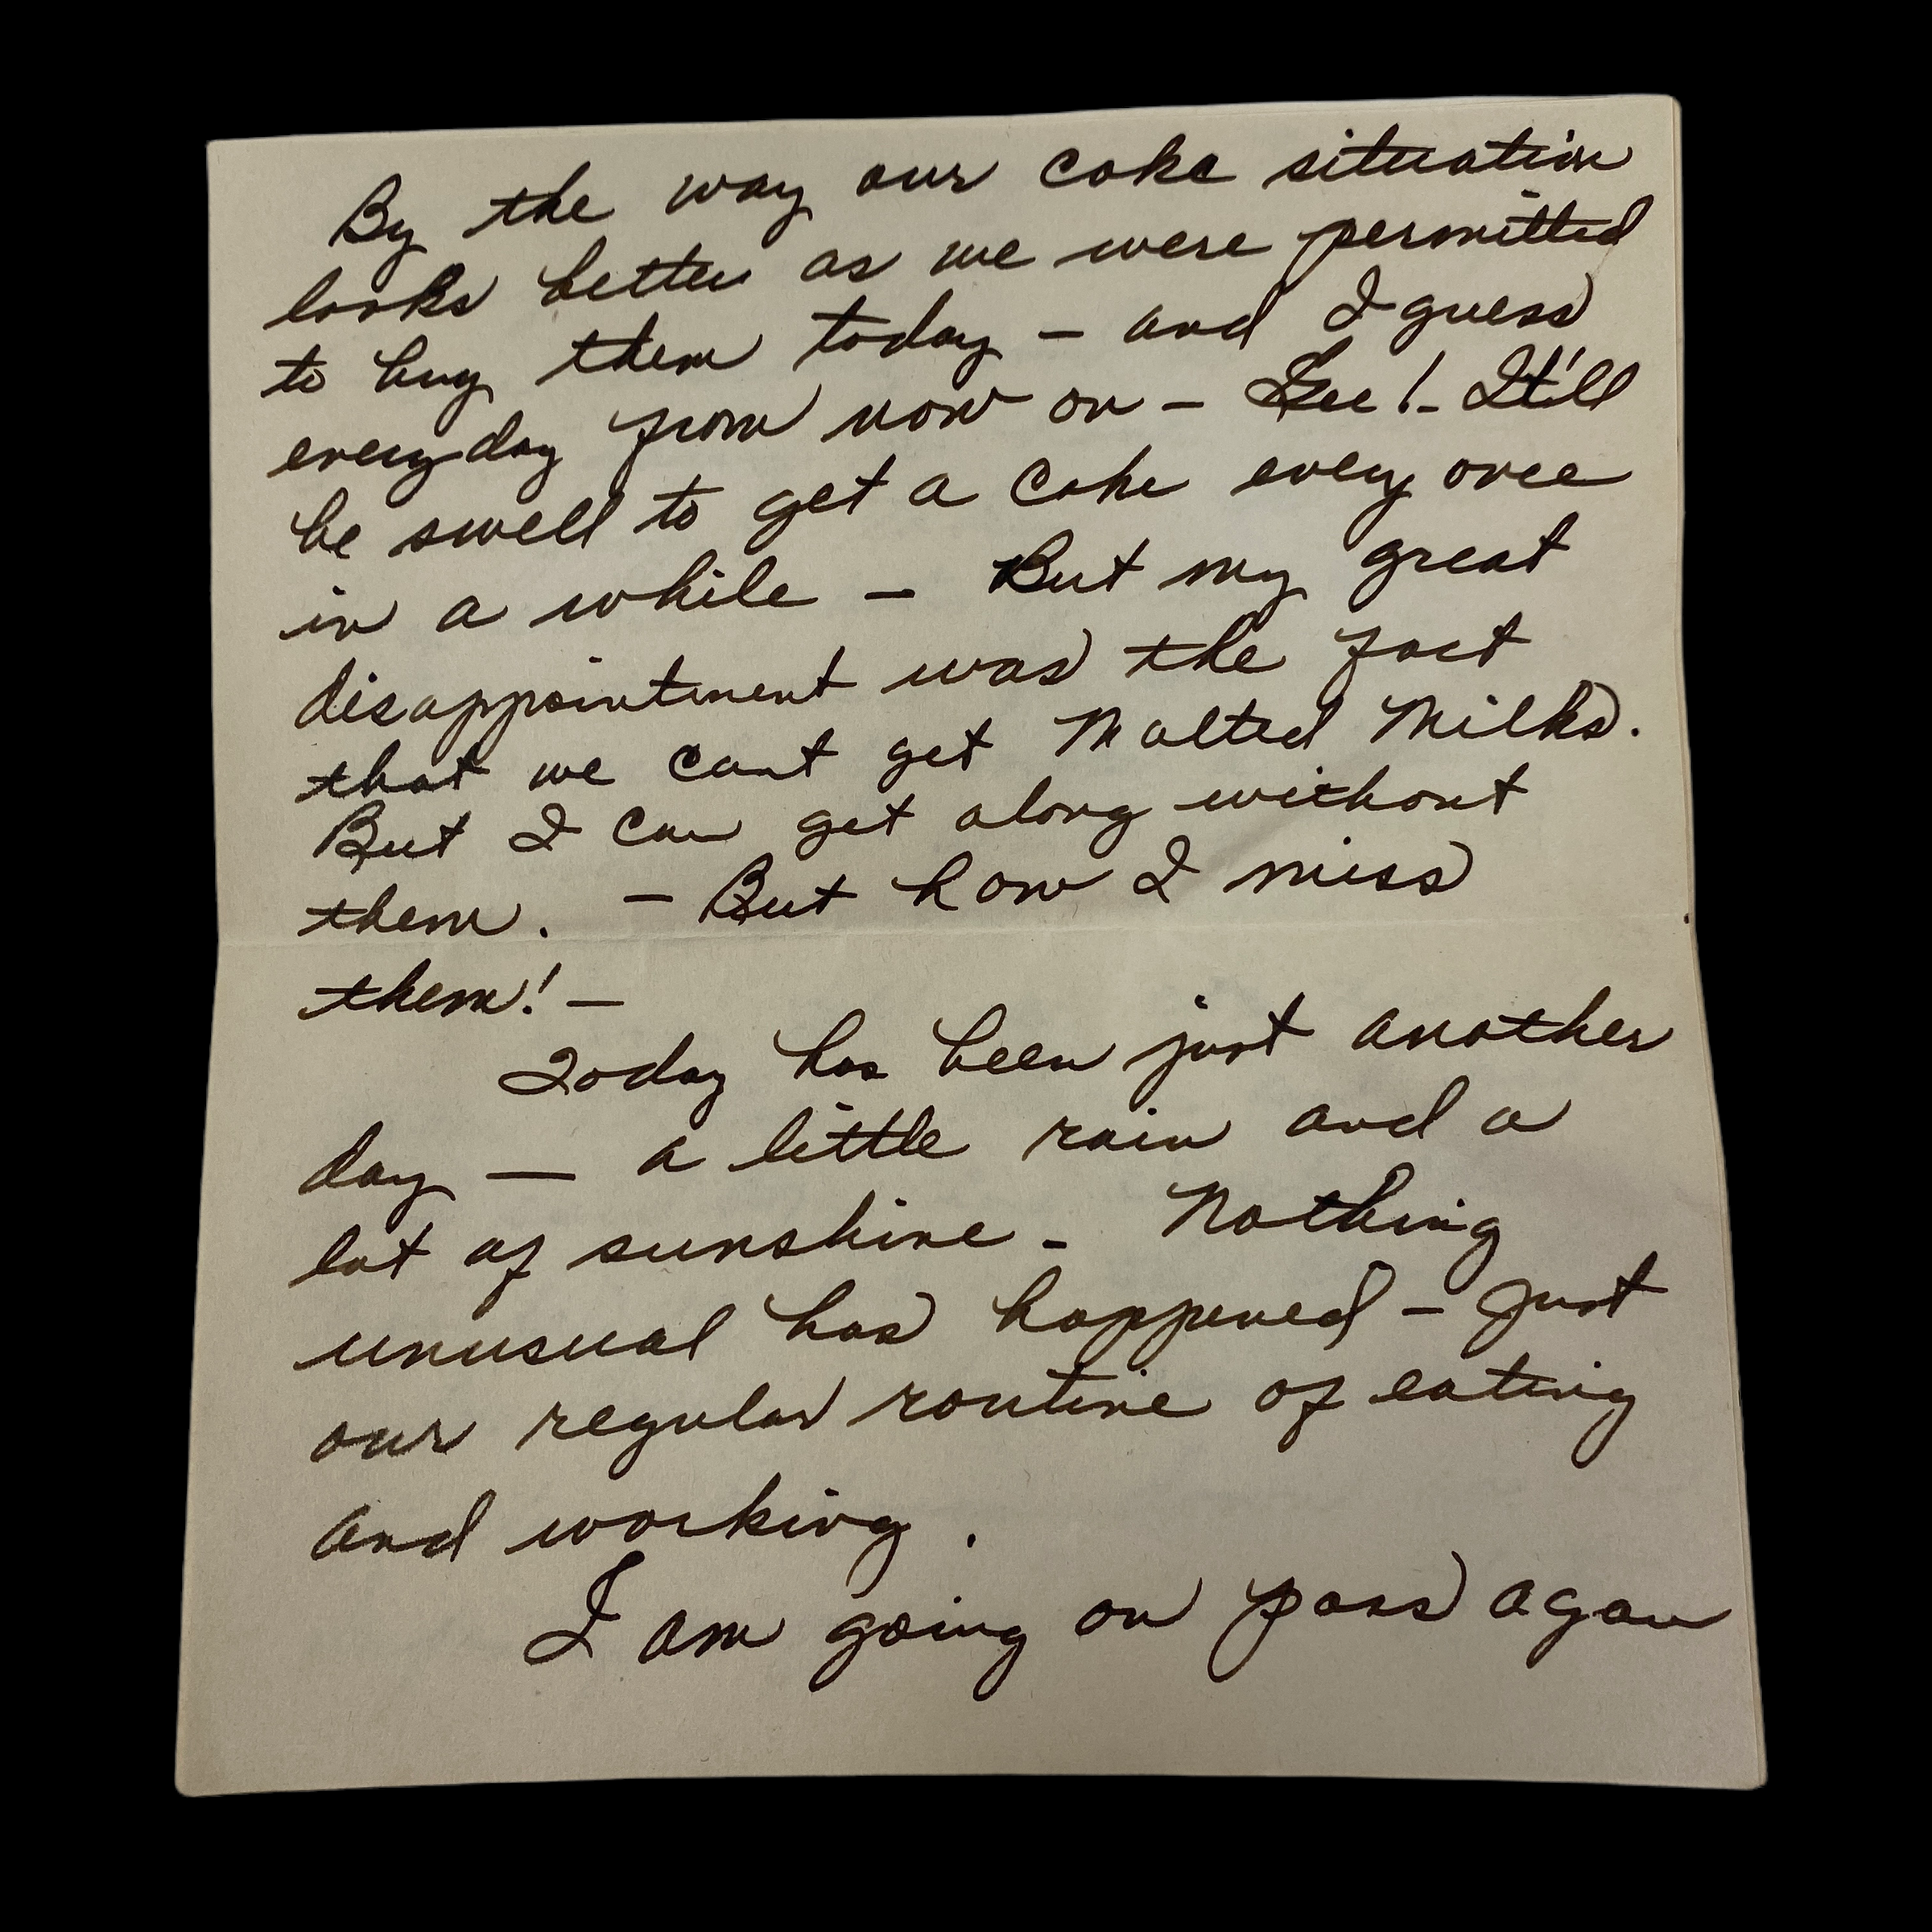 By the way our coke situation
looks better as we were permitted
to buy them today - and I guess
everyday from now on - Gee! - It'll
be swell to get a Coke every once
in a while - But my great
disappointment was the fact
that we cant get Malted Milks.
But I can get along without
them. - But how I miss
them! -
Today has been just another
day — a little rain and a
lot of sunshine - Nothing
unusual has happened - Just
our regular routine of eating
and working.
I am going on pass again